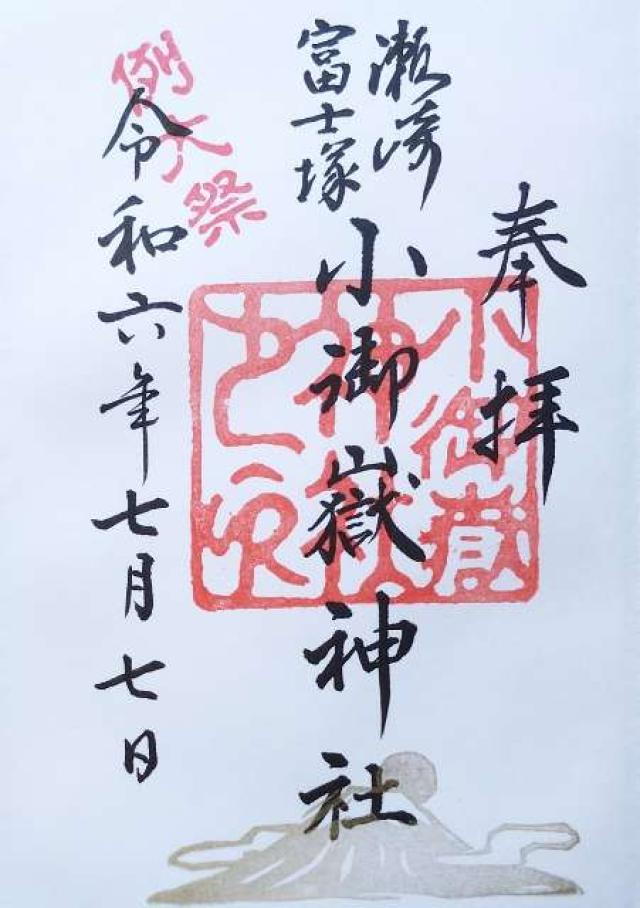 奉拝
瀬崎
富士塚
小御嶽神社
令和六年七月七日
例大祭
小御嶽
神社
之印